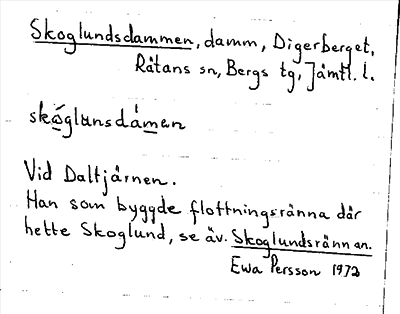 Skoglundsdammen, damm, Digerberget,
Råtans sn, Bergs tg, Jämtl. l.
skóglunsdámen
Vid Daltjärnen.
Han som byggde flottningsränna där
hette Skoglund, se äv. Skoglundsrännan.
Ewa Persson 1972